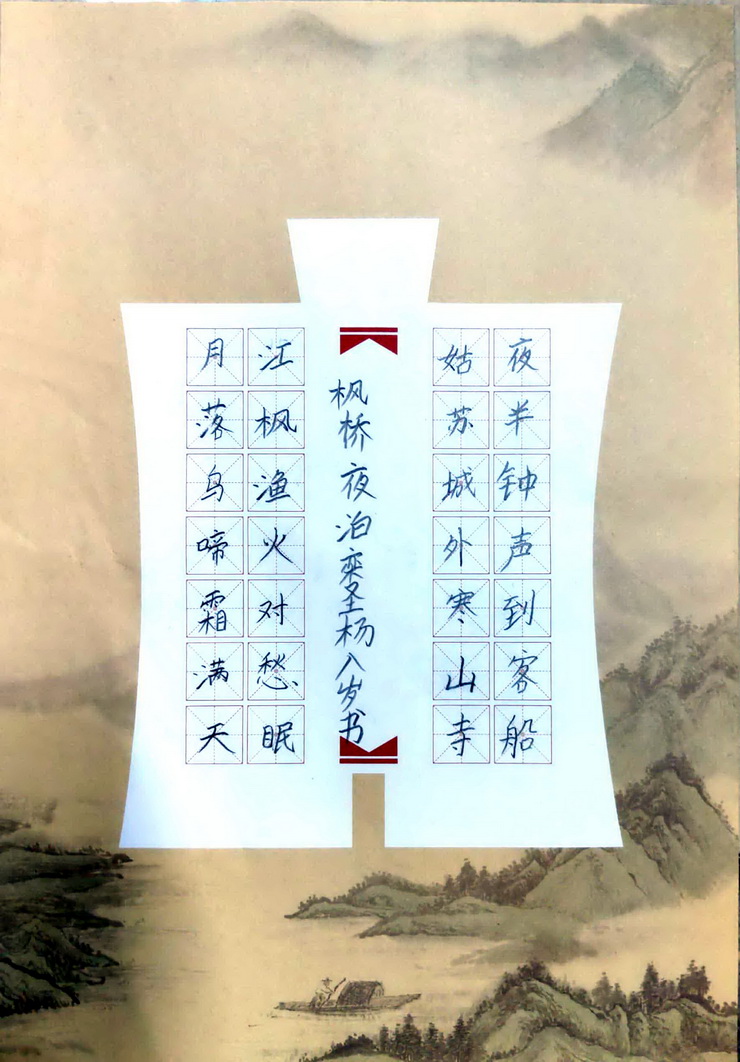 月落乌啼霜满天
江枫渔火对愁眠
枫桥夜泊栾圣杨八岁书
姑苏城外寒山寺
夜半钟声到客船